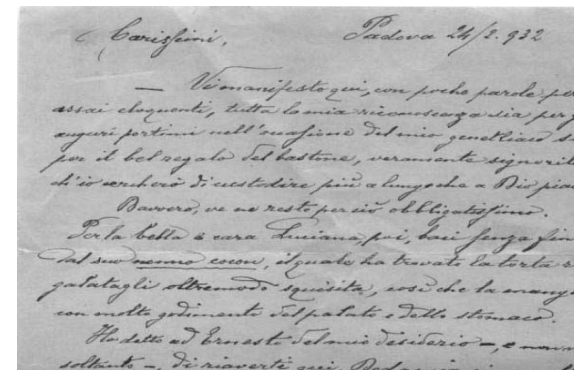 Carissimi, Padova 24/2.932
— Vi manifesto qui, con poche parole per
assai eloquenti, tutta la mia riconoscenza sia per g
auguri portimi nell'occasione del mio genetliaco s
por il bel regalo del bastone, veramente signoril
ch'io cercherò di custodire più a lungo che a Dio piac
Davvero, ve ne resto perciò obbligatissimo.
Per la bella e cara Luciana, poi, baci senza fin
dal suo nonno cocon, il quale ha trovato la torta r
galatagli oltremodo squisita, così che la mangi
con molto godimento del palato e dello stomaco.
Ho detto ad Ernesto del mio desiderio –, e non
soltanto –, di riaverti qui